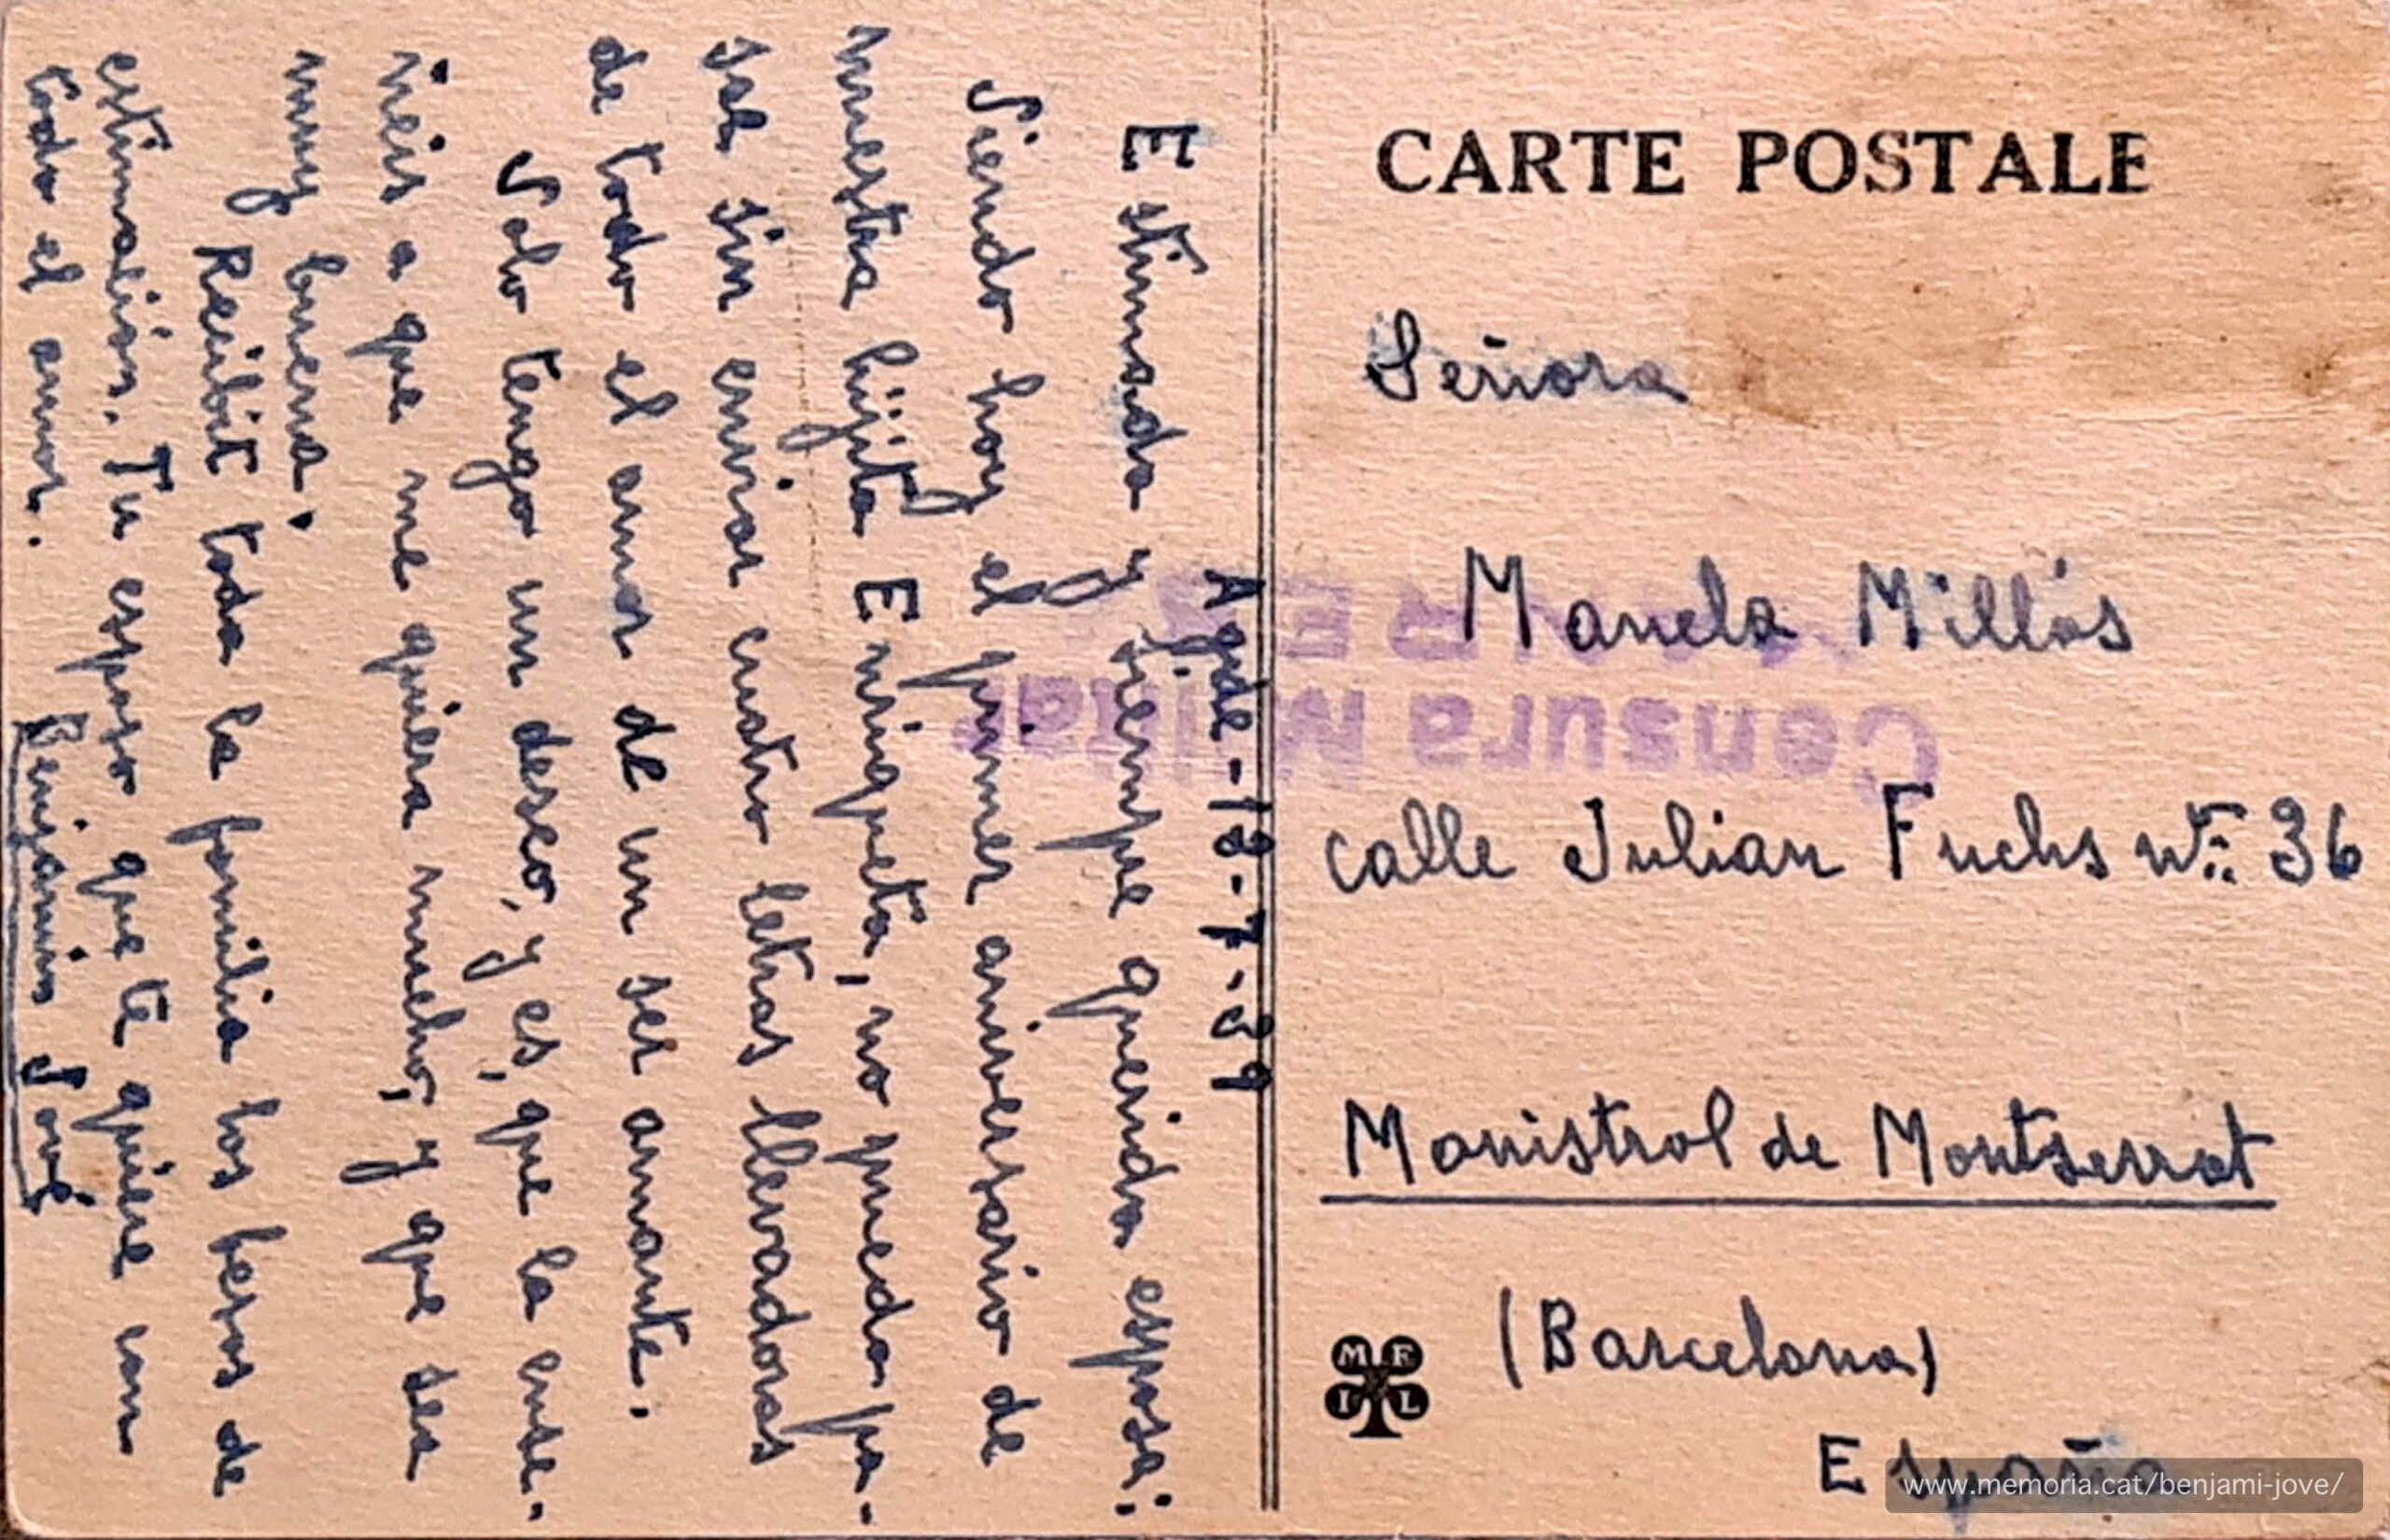 Agde-18-7-39
Estimada y siempre querida esposa:
Siendo hoy el primer aniversario de
nuestra hijita Enriqueta, no puedo pa-
sar sin enviar cuatro letras llevadoras
de todo el amor de un ser amante.
Solo tengo un deseo, y es, que la ense-
ñeis a que me quiera mucho, y que sea
muy buena.
Recibit toda la familia los besos de
estimación. Tu esposo que te quiere con
todo el amor.
Benjamin Jové
CARTE POSTALE
Señora
Manela Millás
calle Julian Fuchs nº: 36
Monistrol de Montserrat
(Barcelona)
España
Censura Militar
M F I L
www.memoria.cat/benjami-jove/